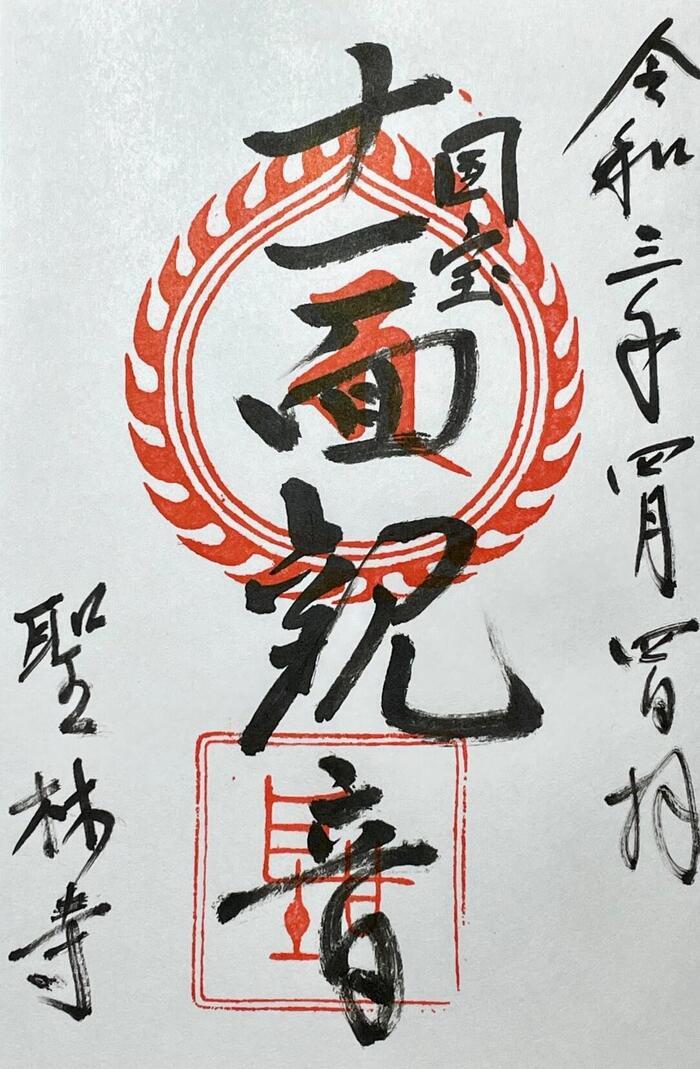 令和三年四月四日拝
国宝
十一面観音
聖林寺